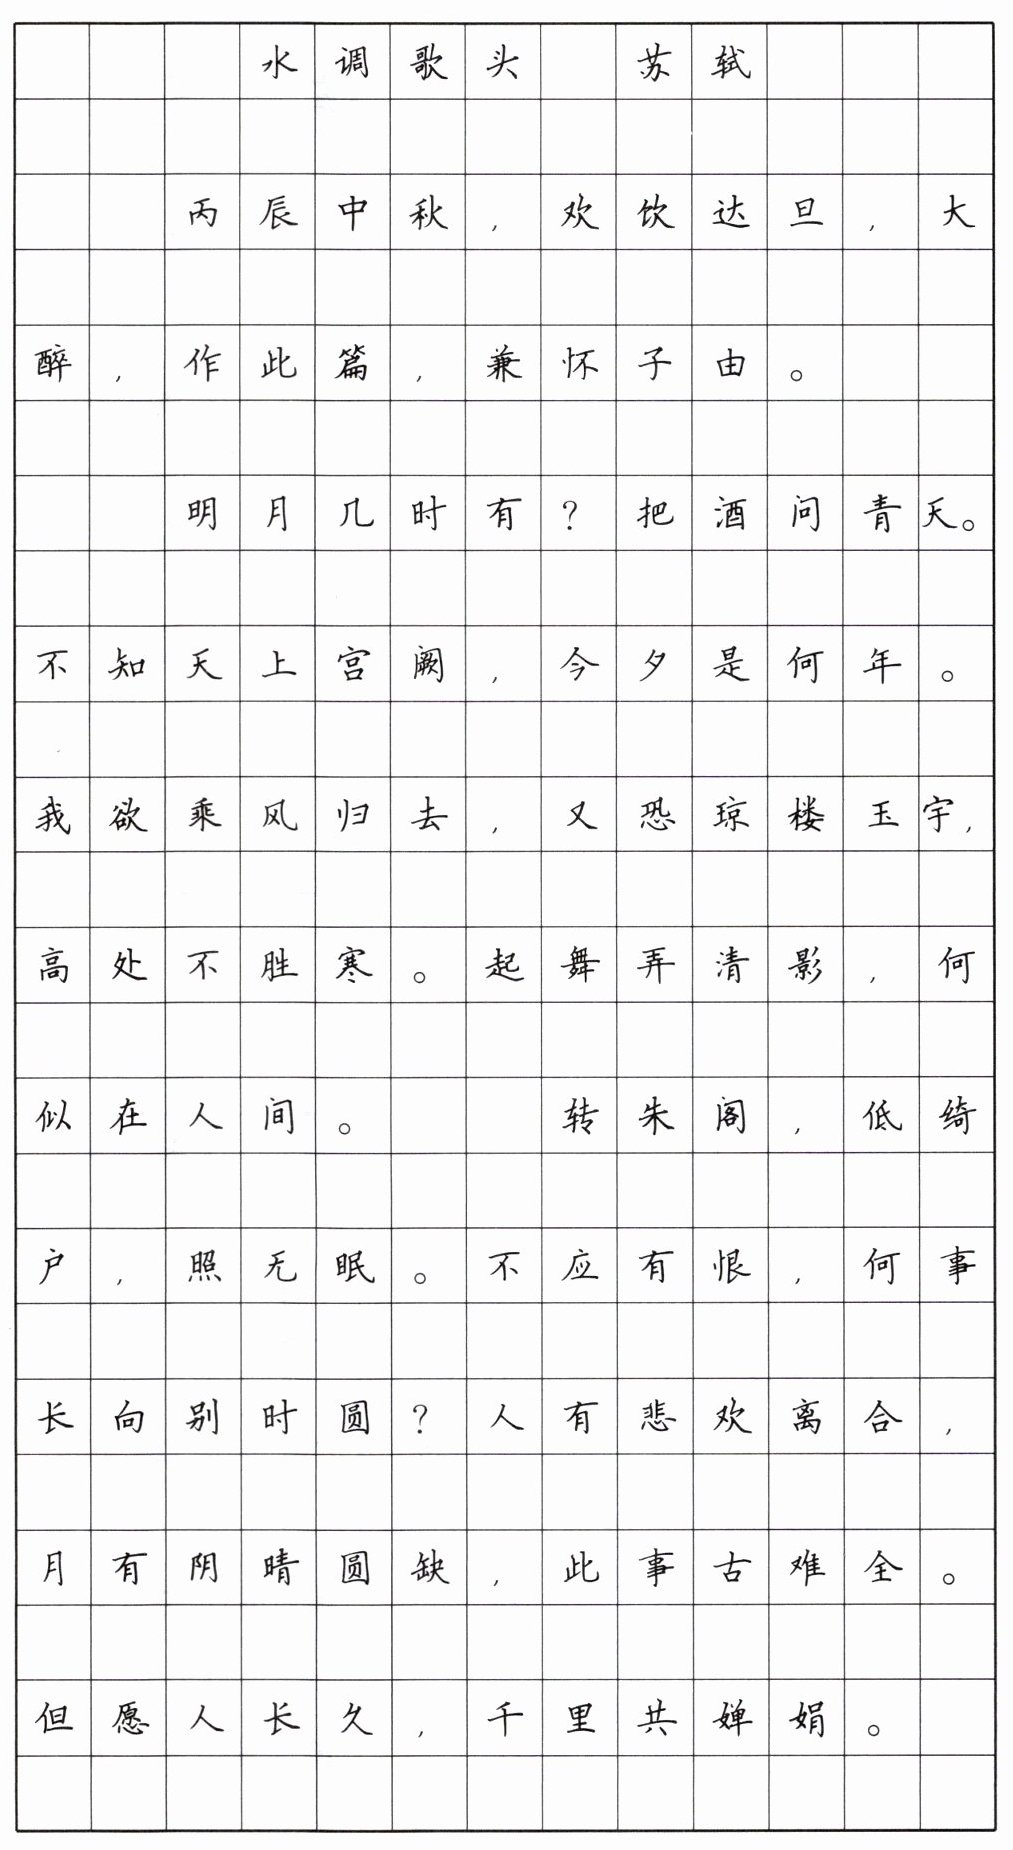 水调歌头 苏轼
丙辰中秋，欢饮达旦，大
醉，作此篇，兼怀子由。
明月几时有？把酒问青天。
不知天上宫阙，今夕是何年。
我欲乘风归去，又恐琼楼玉宇，
高处不胜寒。起舞弄清影，何
似在人间。 转朱阁，低绮
户，照无眠。不应有恨，何事
长向别时圆？人有悲欢离合，
月有阴晴圆缺，此事古难全。
但愿人长久，千里共婵娟。